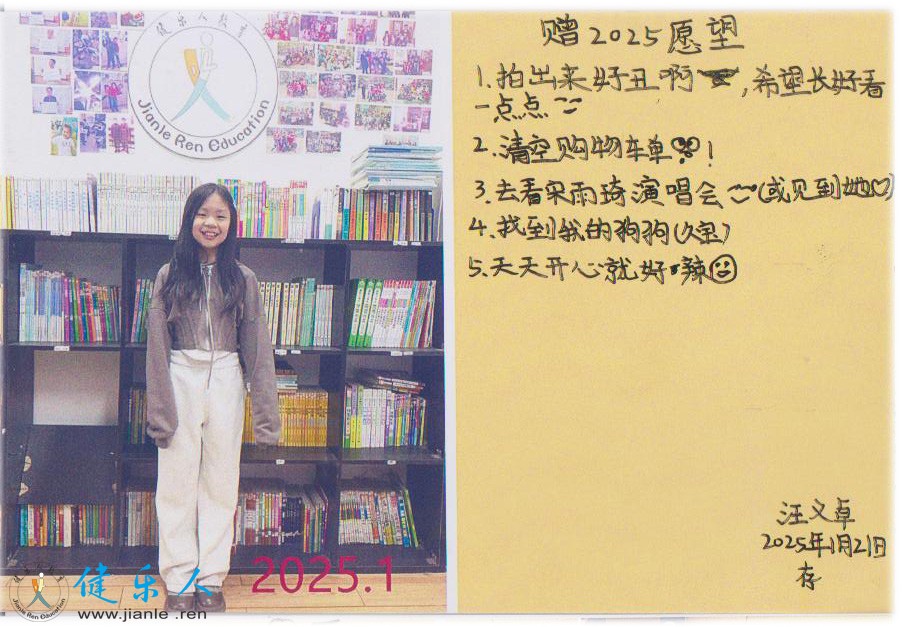 健乐人教育
Jianle Ren Education
赠2025愿望
1.拍出来好丑啊,希望长好看
一点点
2.清空购物车单!
3.去看宋雨琦演唱会~(或见到她♡)
4.找到我的狗狗()
5.天天开心就好辣☺
汪文卓
2025年1月21日
存
2025.1
健乐人
www.jianle .ren
Jianle Ren Education